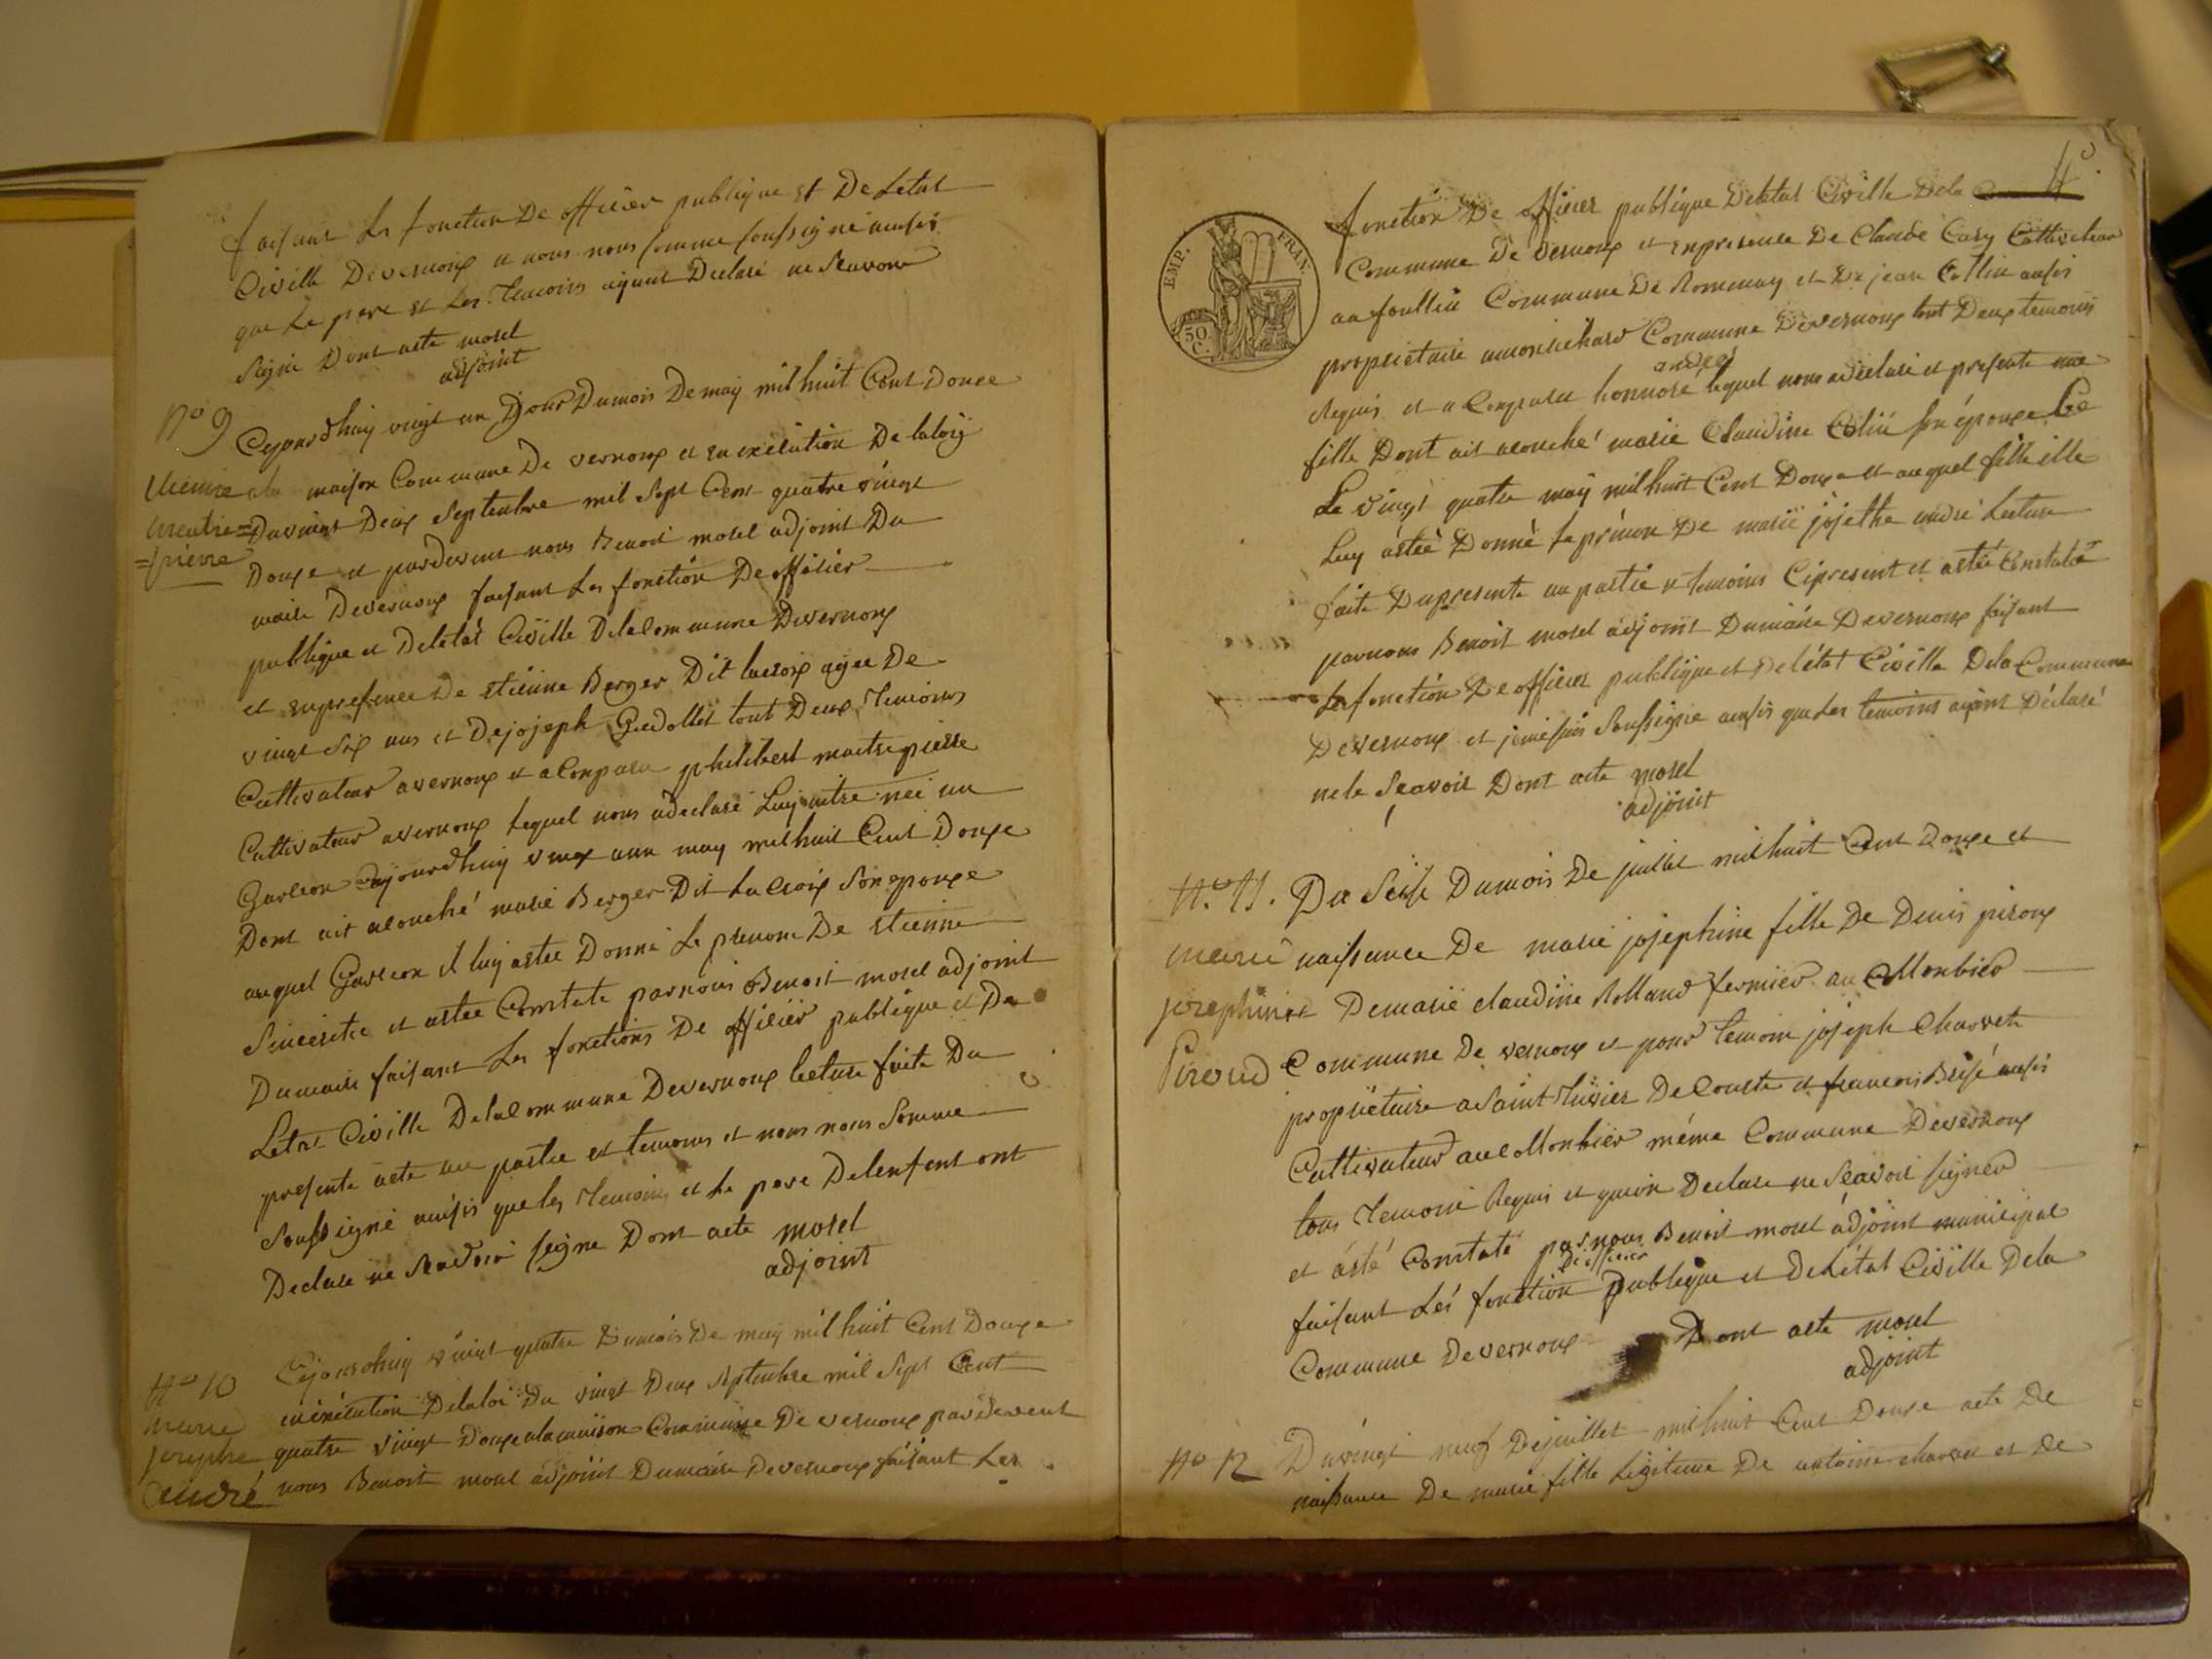 faisant les fonction De officier publique et De Letat
Civille Devernoux et nous nous somme soussigné ausis
que Le pere et Les Temoins ayant Declaré ne Scavoir
Signé Dont acte morel
adjoint
N° 9
Cejourdhuy vingt un Jour Dumois De may mil huit Cent Douze
etienne
maitre=
=pierre
ala maison Commune De vernoux et en exécution De laloÿ
Duvingt Deux Septembre mil Sept Cent quatre vingt
Douze et pardevant nous Benoit morel adjoint Du
maire Devernoux faisant Les fonction De officier
publique et Deletat Civille Delacommune Devernoux
et enpresence De etienne Berger Dit lacroix agée De
vingt Six ans et Dejojeph Gudollet tout Deux Temoins
Cultivateur avernoux et a Conparu philibert maitrepierre
Cultivateur avernoux lequel nous adeclaré Luy aitre née un
Garcon Cejourdhuy vingt unn may milhuit Cent Douze
Dont ait acouché marie Berger Dit La Croix Son epouze
auquel Garcon il luy astée Donné Le prenom De etienne
Sincéritée et astée Comtate parnous Benoit morel adjoint
Dumaire faisant Les fonctions De officier publique et De
Letat Civille Delacommune Devernoux lecture faite Du
presente acte au partie et temoins et nous nous Somme
Soussigné ausis que les Temoins et Le pere Delenfent ont
Declare ne Scavoir signe Dont acte morel
adjoint
N° 10
marie
josephe
André
Cejourdhuy vingt quatre Dumois De may mil huit Cent Douze
enéxécution Delaloi Du vingt Deux Septembre mil Sept Cent
quatre vingt Douze alamaison Commune De vernoux pardevent
nous Benoit morel adjoint Dumaire Devernoux faisant Les
4e
EMP. FRAN.
50 C.
fonction De officier publique Deletat Civille Dela
Commune De vernoux et enpresence De Claude Cary Cultivateur
au foultiu Commune De Romenay et De jean Collin ausis
propriétaire amonrichard Commune Devernoux tout Deux temoins
Requis et a Conparu honnore andrés lequel nous adéclaré et presente une
fille Dont ait acouché marie Claudine Colin son épouze Ce
Le vingt quatre may milhuit Cent Douze et auquel fille ille
Luy astée Donné Le prénom De marie jojethe andré Lecture
faite Dupresente au partie et temoins Cipresent et astée Constatée
parnous Benoit morel adjoint Dumaire Devernoux faisant
Les fonction De officier publique et Delétat Civille Dela Commune
Devernoux et jemesuis Soussigne ausis que Les temoins ayant Déclaré
nele Scavoir Dont acte morel
adjoint
N°. 11. Du Seise Dumois De juillet milhuit Cent Douze et
marie
josephine
Piroud
naissance De marie jojephine fille De Denis piroux
et Demarie claudine Rolland fermier au Colombier
Commune De vernoux et pour temoin jojeph Charvet
propriétaire a Saint Thivier De Courte et francois Brisé ausis
Cultivateur aucollonbier même Commune Devernoux
tous Temoin Requis et quion Declare ne Scavoir signer
et ásté Comtaté par nous Benoit morel adjoint municipal
faisant Les fonction De officier publique et De Létat Civille Dela
Commune Devernoux Dont acte morel
adjoint
N° 12 Duvingt neuf Dejuillet milhuit Cent Douze acte De
naissance De marie fille Légitime De antoine charvet et De